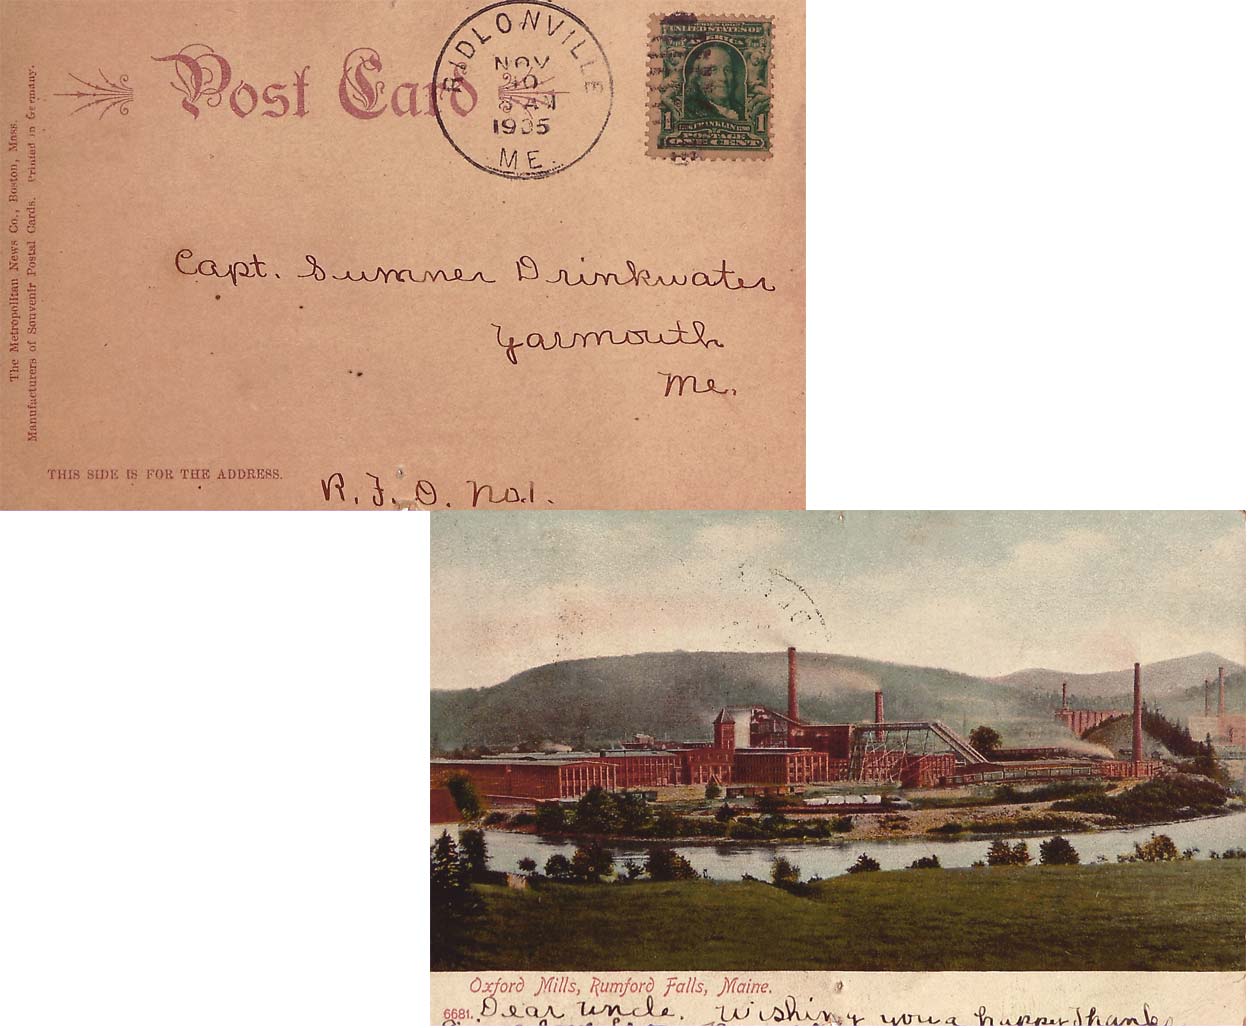 The Metropolitan News Co., Boston, Mass.
Manufacturers of Souvenir Postal Cards. Printed in Germany.
Post Card
RIDLONVILLE
NOV
1905
ME.
UNITED STATES OF
AMERICA
FRANKLIN
1 1
POSTAGE
ONE CENT
Capt. Sumner Drinkwater
Yarmouth
Me.
THIS SIDE IS FOR THE ADDRESS.
R.F.D. No.1.
Oxford Mills, Rumford Falls, Maine.
6681. Dear Uncle. Wishing you a happy Thanks